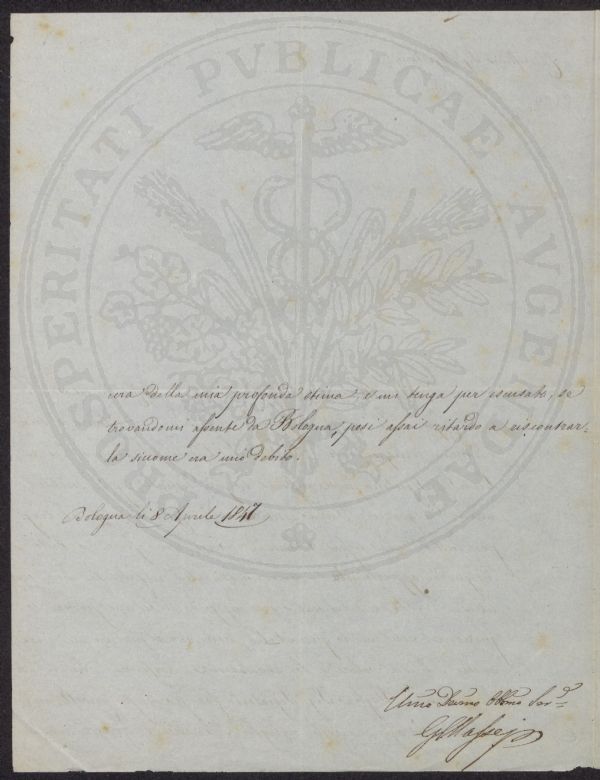 cera della mia profonda stima e mi tenga per escusato, se
trovandomi assente da Bologna, posi assai ritardo a riscontrar=
la siccome era mio debito.
Bologna li 8 Aprile 1847
Umo Devmo Obbmo Serv
PROSPERITATI PVBLICAE AVGENDAE